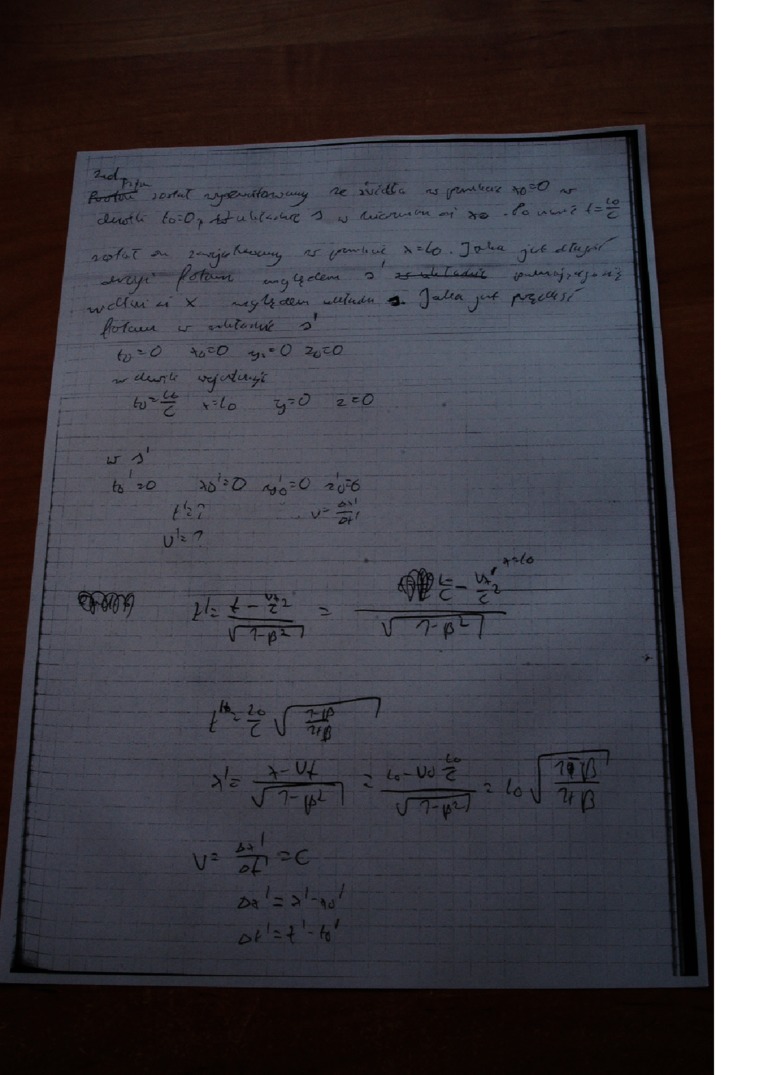 zad
Foton
został wyemitowany ze źródła w punkcie x0=0 w
chwili t0=0, w układzie s w kierunku osi x0. Po czasie t=L0/C
został on zarejestrowany w punkcie x=L0. Jaka jest długość
drogi fotonu względem s' poruszającego się
wzdłuż osi X względem układu s. Jaka jest prędkość
fotonu w układzie s'
t0=0 x0=0 y0=0 z0=0
w chwili rejestracji
t0=L0/C x=L0 y=0 z=0
w s'
t0'=0 x0'=0 y0'=0 z0'=0
t'=? v=Δx'/Δt'
U'=?
x=L0
t'= (t - Vx/C2)/√(1-β2) = (L/C - Vx/C2)/√(1-β2)
t'=L0/C √((1-β)/(1+β))
x'= (x-Vt)/√(1-β2) = (L0-V0 L0/C)/√(1-β2) = L0 √((1-β)/(1+β))
V= Δx'/Δt' =C
Δx'=x'-x0'
Δt'=t'-t0'